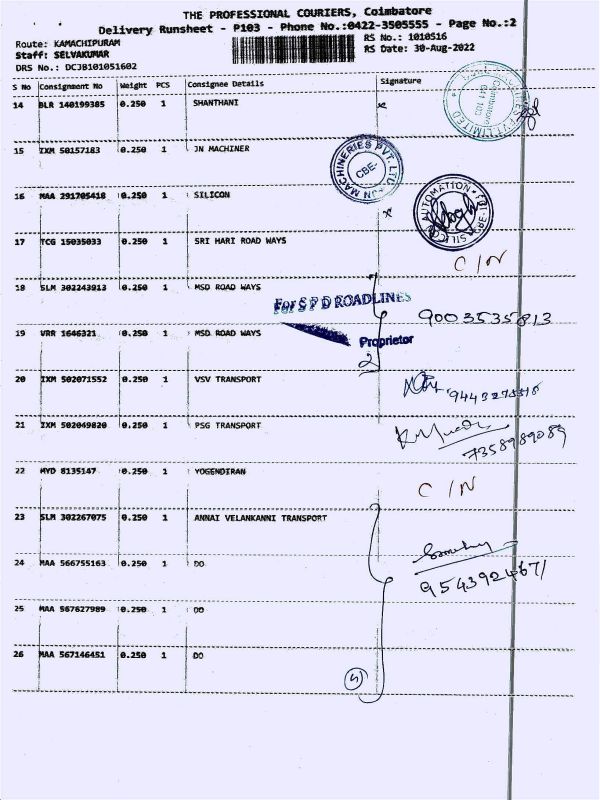 THE PROFESSIONAL COURIERS, Coimbatore
Delivery Runsheet - P103 - Phone No.:0422-3505555 - Page No.:2
Route: KAMACHIPURAM
RS No.: 1010516
Staff: SELVAKUMAR
RS Date: 30-Aug-2022
DRS No.: DCJB101051602
S No Consignment No Weight PCS Consignee Details Signature
14 BLR 140199385 0.250 1 SHANTHANI
15 IXM 50157183 0.250 1 JN MACHINER
JN MACHINERIES PVT. LTD.
CBE-
16 MAA 291705418 0.250 1 SILICON
SILICON AUTOMATION
17 TCG 15035033 0.250 1 SRI HARI ROAD WAYS
C/N
18 SLM 302243913 0.250 1 MSD ROAD WAYS
For S P D ROADLINES
9003535813
19 VRR 1646321 0.250 1 MSD ROAD WAYS
Proprietor
2
20 IXM 502071552 0.250 1 VSV TRANSPORT
21 IXM 502049820 0.250 1 PSG TRANSPORT
7358989089
22 MYD 8135147 0.250 1 YOGENDIRAN
C/N
23 SLM 302267075 0.250 1 ANNAI VELANKANNI TRANSPORT
24 MAA 566755163 0.250 1 DO
9543924671
25 MAA 567627989 0.250 1 DO
26 MAA 567146451 0.250 1 DO